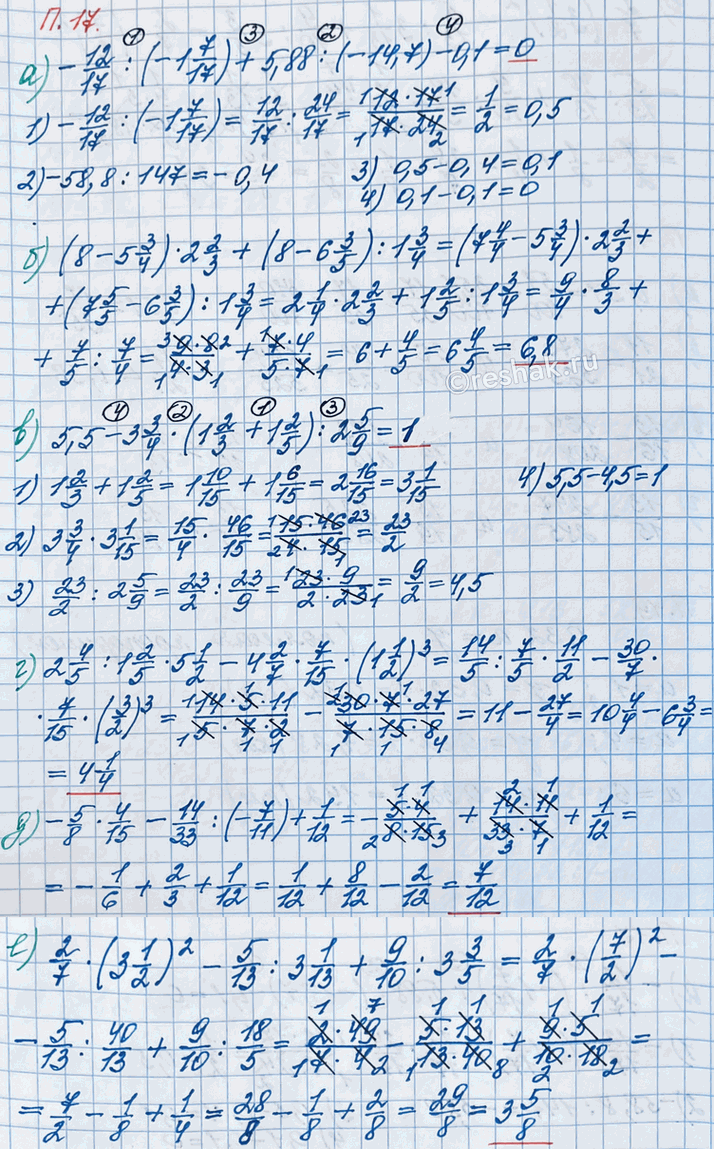 П. 17.
а) -12/17 : (-1 7/17) + 5,88 : (-14,7) - 0,1 = 0
1) -12/17 : (-1 7/17) = 12/17 : 24/17 = 12·17/17·24 = 1/2 = 0,5
2) -58,8 : 147 = -0,4    3) 0,5 - 0,4 = 0,1
4) 0,1 - 0,1 = 0
б) (8 - 5 3/4) · 2 2/3 + (8 - 6 3/5) : 1 3/4 = (7 4/4 - 5 3/4) · 2 2/3 +
+ (7 5/5 - 6 3/5) : 1 3/4 = 2 1/4 · 2 2/3 + 1 2/5 : 1 3/4 = 9/4 · 8/3 +
+ 7/5 : 7/4 = 9·8/4·3 + 7·4/5·7 = 6 + 4/5 = 6 4/5 = 6,8
©reshak.ru
в) 5,5 - 3 3/4 · (1 2/3 + 1 2/5) : 2 5/9 = 1
1) 1 2/3 + 1 2/5 = 1 10/15 + 1 6/15 = 2 16/15 = 3 1/15    4) 5,5 - 4,5 = 1
2) 3 3/4 · 3 1/15 = 15/4 · 46/15 = 15·46/4·15 = 23/2
3) 23/2 : 2 5/9 = 23/2 : 23/9 = 23·9/2·23 = 9/2 = 4,5
г) 2 4/5 : 1 2/5 · 5 1/2 - 4 2/7 · 7/15 · (1 1/2)³ = 14/5 : 7/5 · 11/2 - 30/7 ·
· 7/15 · (3/2)³ = 14·5·11/5·7·2 - 30·7·27/7·15·8 = 11 - 27/4 = 10 4/4 - 6 3/4 =
= 4 1/4
д) -5/8 · 4/15 - 14/33 : (-7/11) + 1/12 = -5·4/8·15 + 14·11/33·7 + 1/12 =
= -1/6 + 2/3 + 1/12 = 1/12 + 8/12 - 2/12 = 7/12
е) 2/7 · (3 1/2)² - 5/13 : 3 1/13 + 9/10 : 3 3/5 = 2/7 · (7/2)² -
- 5/13 : 40/13 + 9/10 : 18/5 = 2·49/7·4 - 5·13/13·40 + 9·5/10·18 =
= 7/2 - 1/8 + 1/4 = 28/8 - 1/8 + 2/8 = 29/8 = 3 5/8